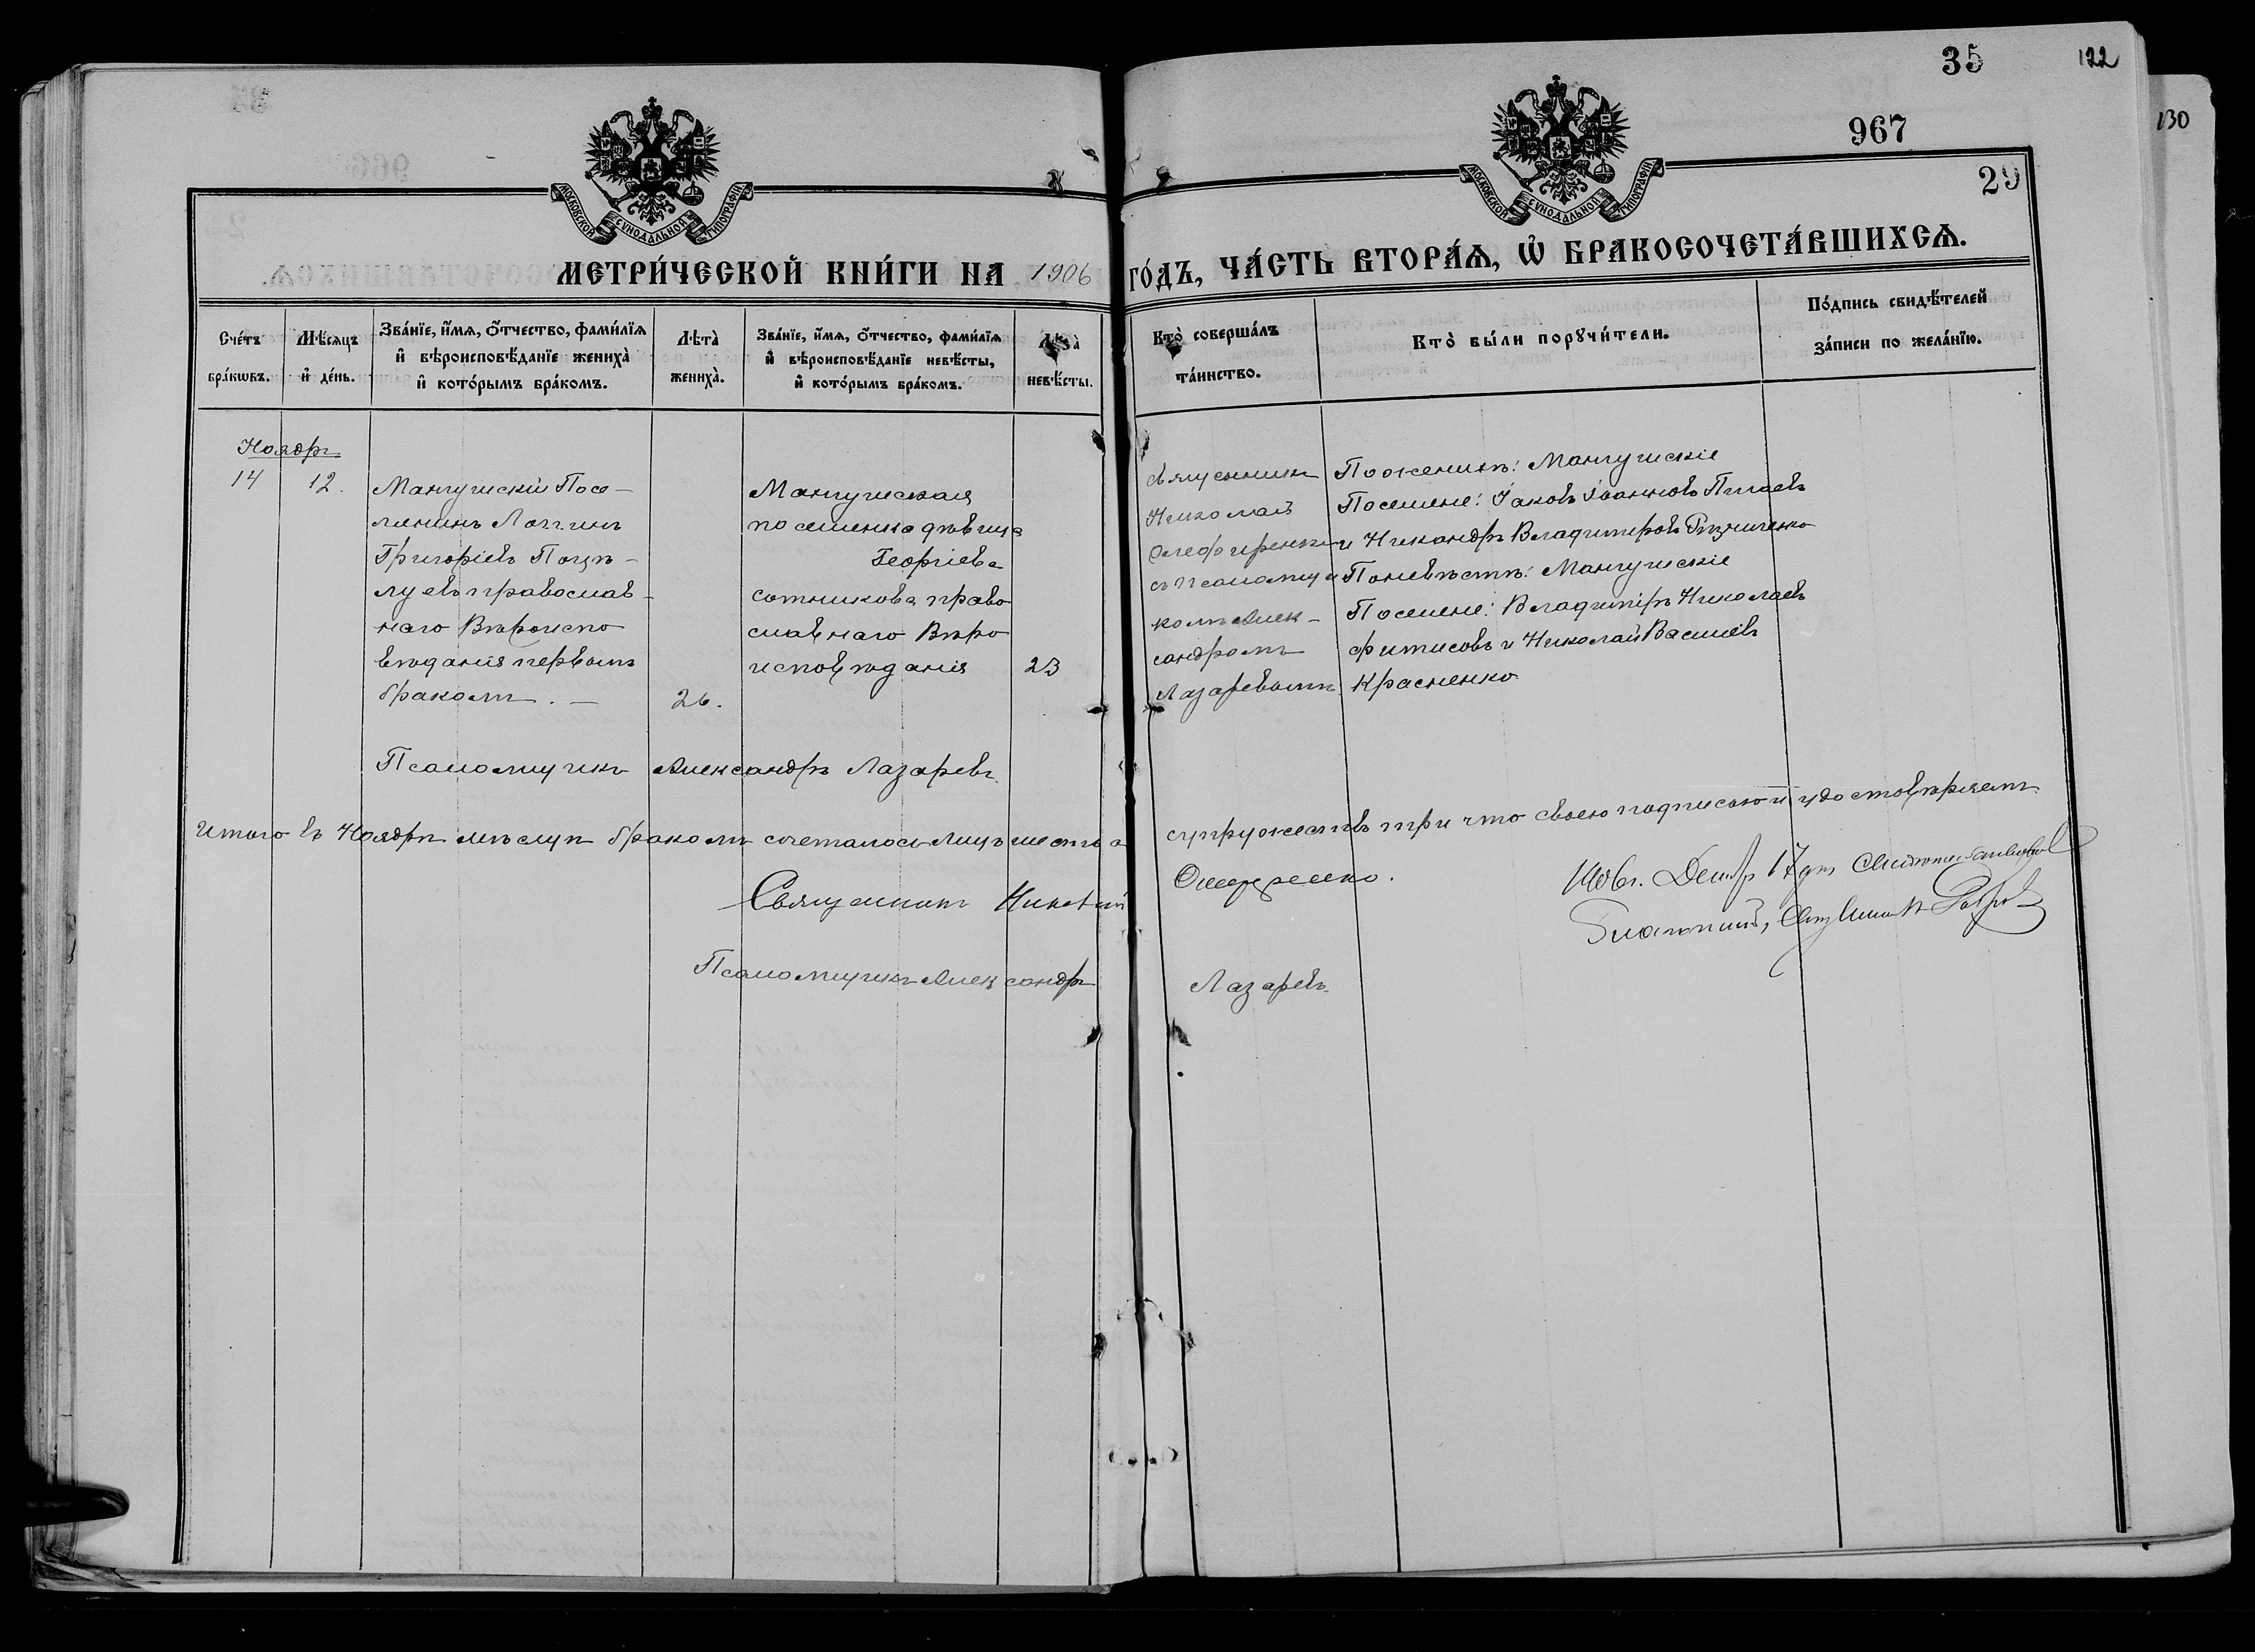 35
122
967
130
29
МОСКОВСКОЙ СѴНОДАЛЬНОЙ ТИПОГРАФІИ
МОСКОВСКОЙ СѴНОДАЛЬНОЙ ТИПОГРАФІИ
МЕТРИ́ЧЕСКОЙ КНИ́ГИ НА 1906 ГО́ДЪ, ЧА́СТЬ ВТОРА́Ѧ, Ѡ҆ БРАКОСОЧЕТА́ВШИХСѦ.
Сче́тъ
бра́кѡвъ.
Мѣ́сяцъ
и҆ де́нь.
Зва́нїе, и҆́мѧ, о҆́тчество, фами́лїѧ
и҆ вѣроисповѣ́данїе жениха̀
и҆ кото́рымъ бра́комъ.
Лѣта̀
жениха̀.
Зва́нїе, и҆́мѧ, о҆́тчество, фами́лїѧ
и҆ вѣроисповѣ́данїе невѣ́сты,
и҆ кото́рымъ бра́комъ.
Лѣта̀
невѣ́сты.
Кто̀ соверша́лъ
та́инство.
Кто̀ бы́ли порꙋчи́тели.
По́дпись свидѣ́телей
за́писи по жела́нїю.
Ноябрь
14
12.
Мангушскій Посе-
лянинъ Логгинъ
Григоріевъ Поцѣ-
луевъ православ-
наго Вѣроиспо
вѣданія первымъ
бракомъ. —
26.
Мангушская
поселянка дѣвица
Георгіева
Сотникова право
славнаго Вѣро
исповѣданія
23
Священникъ
Николай
Олеференко
съ псаломщи
комъ Алек-
сандромъ
Лазаревымъ.
По женихѣ: Мангушскіе
Поселяне: Іаковъ Іоанновъ Пилаевъ
и Никандръ Владиміровъ Рѣзниченко
По невѣстѣ: Мангушскіе
Поселяне: Владиміръ Николаевъ
Фитисовъ и Николай Васильевъ
Красненко
Псаломщикъ Александръ Лазаревъ.
Итого въ Ноябрѣ мѣсяцѣ бракомъ сочеталось лицъ шесть а супружествъ три что своею подписью и удостовѣряемъ.
Священникъ Николай Олеференко.
17
Благочинный,
Псаломщикъ Александръ Лазаревъ.